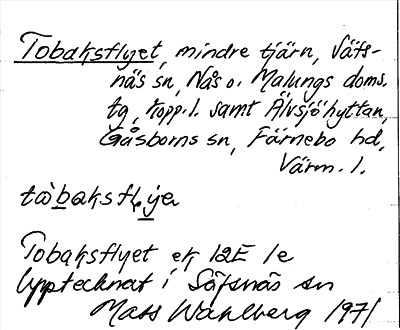 Tobaksflyet, mindre tjärn, Säfs-
näs sn, Nås o. Malungs doms.
tg, Kopp. l. samt Älvsjöhyttan,
Gåsborns sn, Färnebo hd,
Värm. l.
Tobaksflyet ek 12E 1e
Upptecknat i Säfsnäs sn
Mats Wahlberg 1971